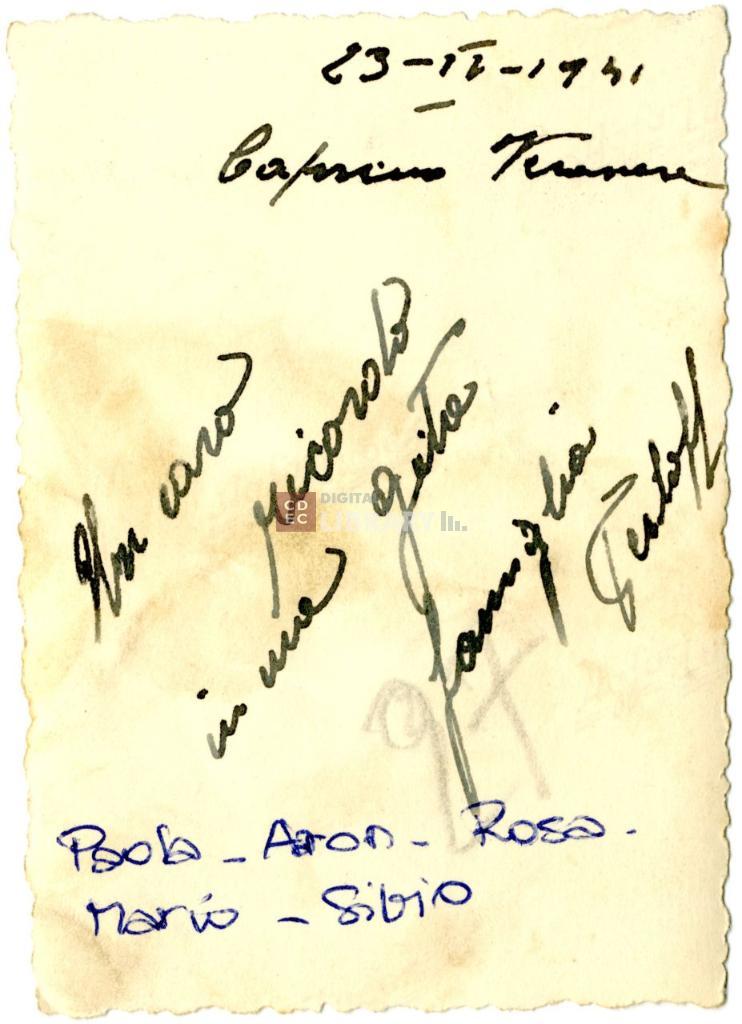 23-II-1941
Caprino Veronese
Un caro ricordo
in una gita
famiglia
97
CDEC DIGITAL LIBRARY
Paola - Aron - Rosa -
Mario - Silvio